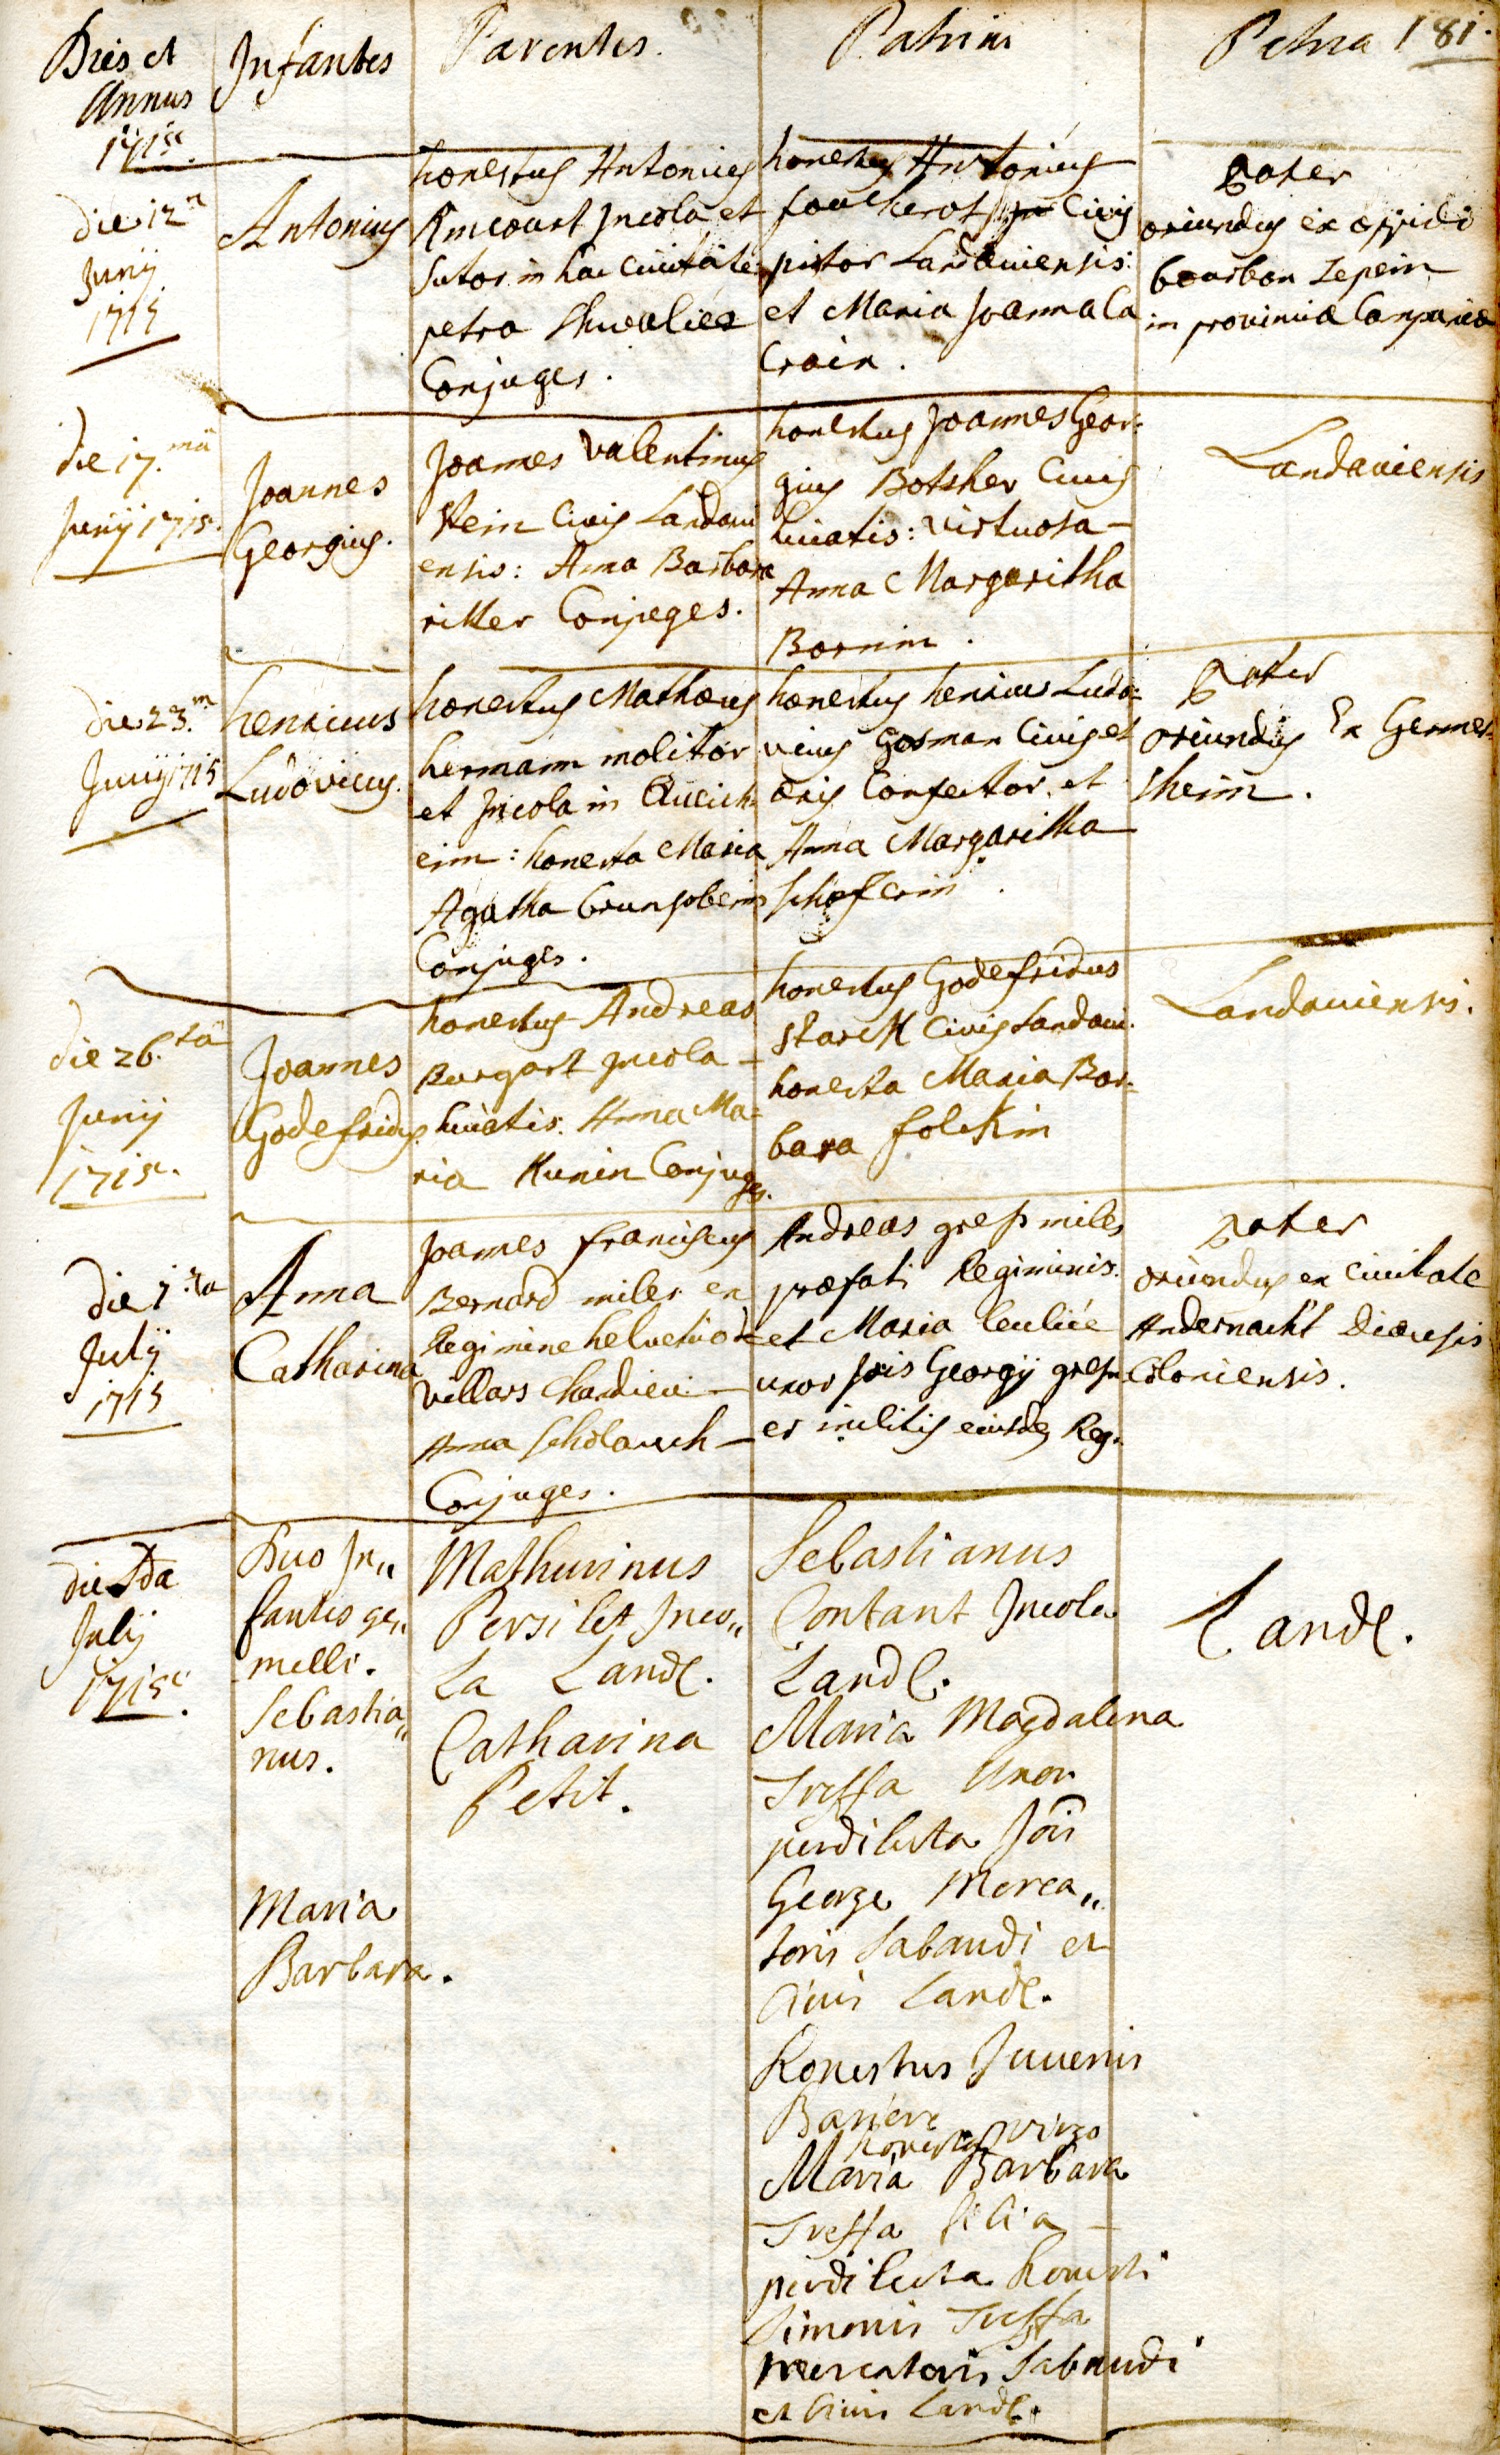 Dies et
Annus
1715.
Infantes
Parentes.
Patrini
Patria 181.
die 12a
Junij
1715
Antonius
honestus Antonius
Rincourt Incola et
sutor in hac civitate
petra
Conjuges.
honestus Antonius
fouckerot civis
pistor Landaviensis:
et Maria Joanna la
Croix.
pater
oriundus ex oppido
bourbon
in provincia Campaniae
die 17.ma
Junij 1715.
Joannes
Georgius.
Joannes Valentinus
Stein Civis Landavi
ensis: Anna Barbara
ritter Conjeges.
honestus Joannes Geor:
gius Botsher Civis
huiatis: virtuosa –
Anna Margaritha
Bornin.
Landaviensis
die 23.m
Junij 1715
henricus
Ludovicus.
honestus Mathaeus
hermann molitor
et Incola in Queich
eim: honesta Maria
Agatha
Conjuges.
honestus henricus Ludo:
vicus Gosman Civis et
aeris Confector, et
Anna Margaritha
schoferin.
pater
oriundus Ex Germer:
sheim.
die 26.ta
Junij
1715.
Joannes
Godefridus.
honestus Andreas
Burgart Incola –
huiatis. Anna Ma:
ria Kunin Conjuges.
honestus Godefridus
starck Civis Landavi.
honesta Maria Bar:
bara folckin
Landaviensis.
die 1ma
Julij
1715
Anna
Catharina
Joannes franciscus
Bernard miles ex
Regimine helvetico de
villars Chandieu –
Anna Scholauch –
Conjuges.
Andreas gress miles
praefati Regiminis.
et Maria
uxor Jois Georgij
militis eiusdem Reg.
pater
oriundus ex Civitate
Andernacht Dioecesis
Coloniensis.
die 2da
Julij
1715.
Duo In„
fantes ge„
melli.
Sebastia„
nus.
Maria
Barbara.
Mathurinus
Persilet Inco„
la Land.
Catharina
Petit.
Sebastianus
Contant Incola
Land.
Maria Magdalena
Treffa Uxor
perdilecta Jois
George Merca„
toris Sabaudi et
Civis Land.
Honestus Juvenis
Bariere
honesta virgo
Maria Barbara
Treffa filia –
perdilecta honesti
Simonis Treffa
mercatoris Sabaudi
et Civis Land.
Land.